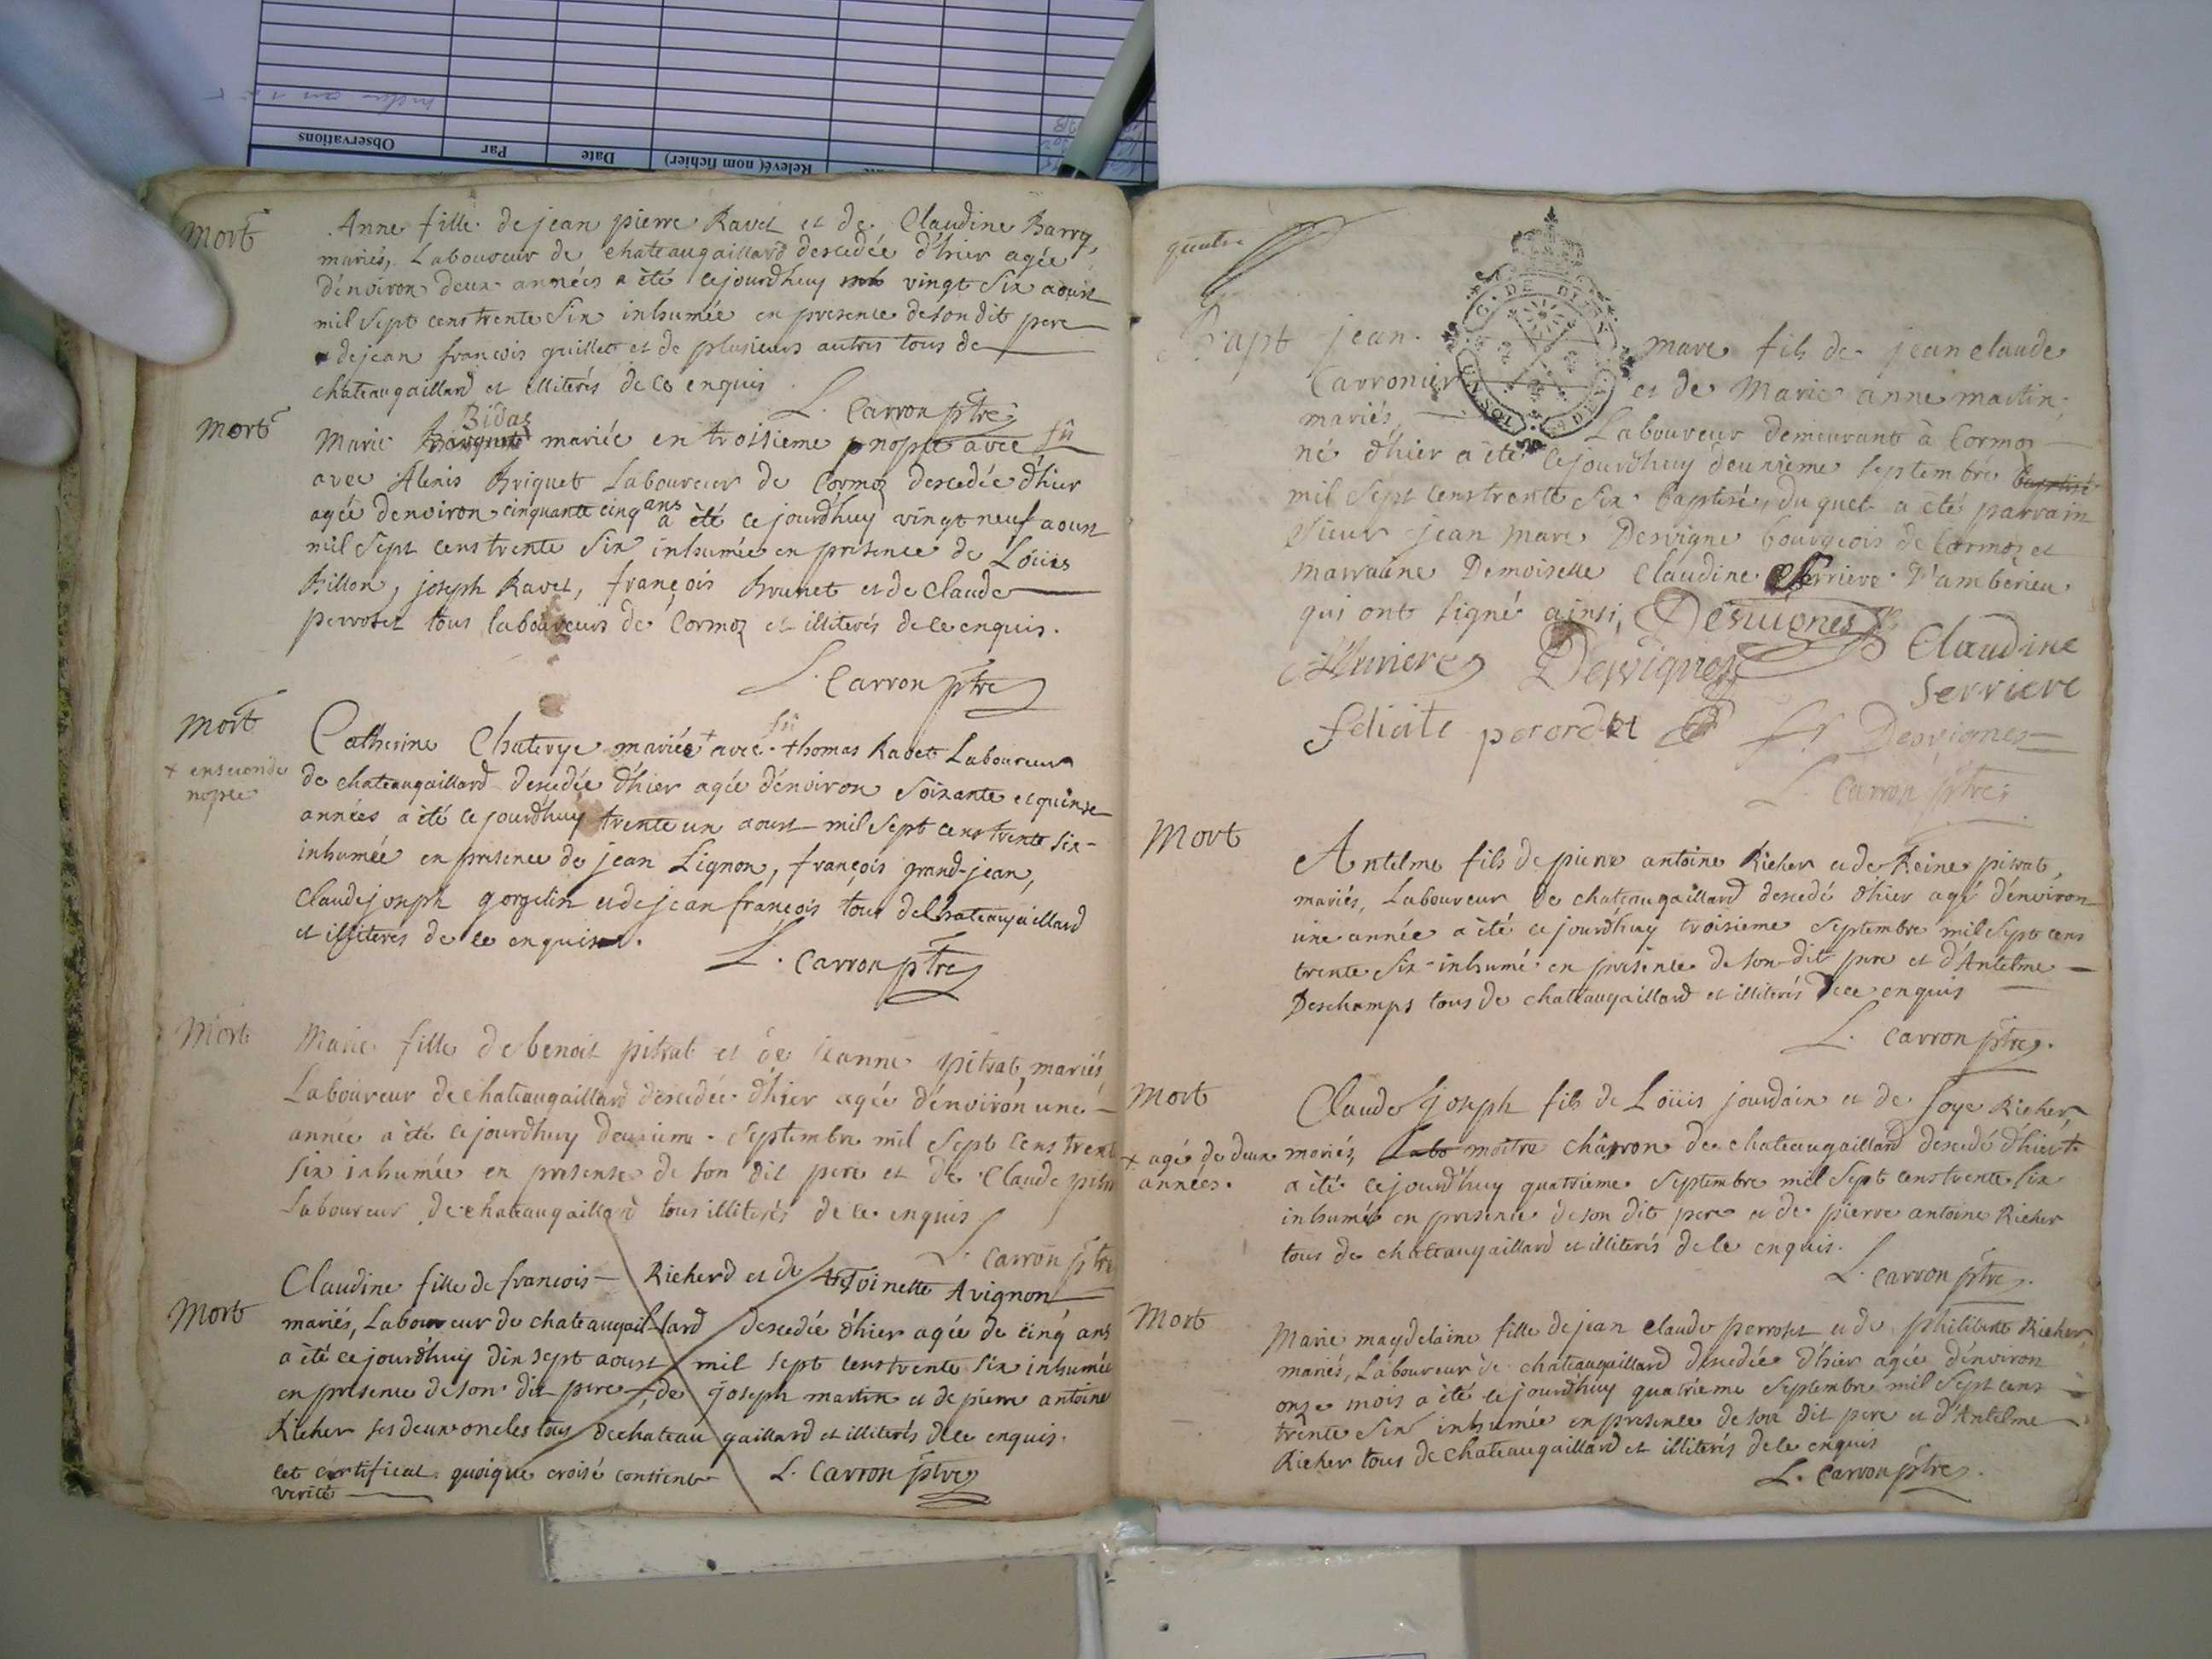 Observations
Par
Date
Relevé( nom fichier)
Mort
Anne fille de jean pierre Ravet et de Claudine Barry,
mariés, Laboureur de chateaugaillard descedée d'hier agée
d'énviron deux années a été cejourd'huy vingt six aoust
mil sept cens trente six inhumée en presence de son dit pere
de jean francois guillet et de plusieurs autres tous de
chateaugaillard et illiterés de ce enquis
L. Carron ptre
Mort
Bidaz
Marie mariée en troisieme nopce avec fû
avec Alexis Briquet Laboureur de Cormoz descedée d'hier
agée denviron cinquante cinq ans a été ce jourd'huy vingt neuf aoust
mil sept cens trente six inhumée en presence de Loüis
Billon, joseph Ravet, françois Brunet et de Claude
perroset tous laboureurs de Cormoz et illiterés de ce enquis.
L. Carron ptre
Mort
fû
Catherine Chaterye mariée + avec thomas Ravet Laboureur
+ en seconde
nopce
de chateaugaillard descedée d'hier agée d'énviron soixante et quinse
années a été ce jourd'huy trente un aoust mil sept cens trente six
inhumée en presence de jean Lignon, françois grand-jean,
Claude joseph gorgelin et de jean françois tous de Chateaugaillard
et illiterés de ce enquis.
L. Carron ptre
Mort
Marie fille de benoit pitrat et de jeanne pitrat, mariés
Laboureur de chateaugaillard descedée d'hier agée d'énviron une
année a été cejourdhuy deuxieme septembre mil sept cens trent
six inhumée en presense de son dit pere et de Claude pitra
Laboureur de chateaugaillard tous illiterés de ce enquis
L. Carron ptre
Claudine fille de francois Richerd et de Antoinette Avignon
Mort
mariés, Laboureur de chateaugaillard descedée d'hier agée de cinq ans
a été ce jourd'huy dix sept aoust mil sept cens trente six inhumée
en presence de son dit pere, de joseph martin et de pierre antoine
Richer ses deux oncles tous de chateau gaillard et illiterés de ce enquis.
cet certificat quoique croisé contient L. Carron ptre
verité
quatre
Bapt
jean marc fils de jean claude
Carronier et de Marie anne martin,
mariés, Laboureur demeurant à Cormoz
né d'hier a été cejourd'huy deuxieme septembre baptisé
mil sept cens trente six baptisé, du quel a été parrain
sieur jean marc Desvigne bourgeois de Cormoz et
marraine Demoiselle Claudine Serriere d'ambérieu
qui ont signé ainsi, Desuignes
Desvignes Claudine
Serriere
felicité perordet Desvignes
L. Carron ptre
Mort
Antelme fils de pierre antoine Richer et de Reine pitrat,
mariés, Laboureur de chateaugaillard descedé d'hier agé d'énviron
une année a été ce jourd'huy troisieme septembre mil sept cens
trente six inhumé en présence de son dit pere et d'Antelme
Deschamps tous de chateaugaillard et illiterés de ce enquis
L. Carron ptre.
Mort
Claude joseph fils de Loüis jourdain et de foye Richer
+ agé de deux
années.
mariés, Labo maitre charron de chateaugaillard descedé d'hier +
a été cejourd'huy quatrieme septembre mil sept cens trente six
inhumé en presence de son dit pere et de pierre antoine Richer
tous de chateaugaillard et illiterés de ce enquis.
L. Carron ptre.
Mort
Marie magdelaine fille de jean claude perroset et de philiberte Richer
mariés, Laboureur de chateaugaillard descedée d'hier agée d'énviron
onze mois a été ce jourd'huy quatrieme septembre mil sept cens
trente six inhumée en presence de son dit pere et d'Antelme
Richer tous de chateaugaillard et illiterés de ce enquis
L. Carron ptre.